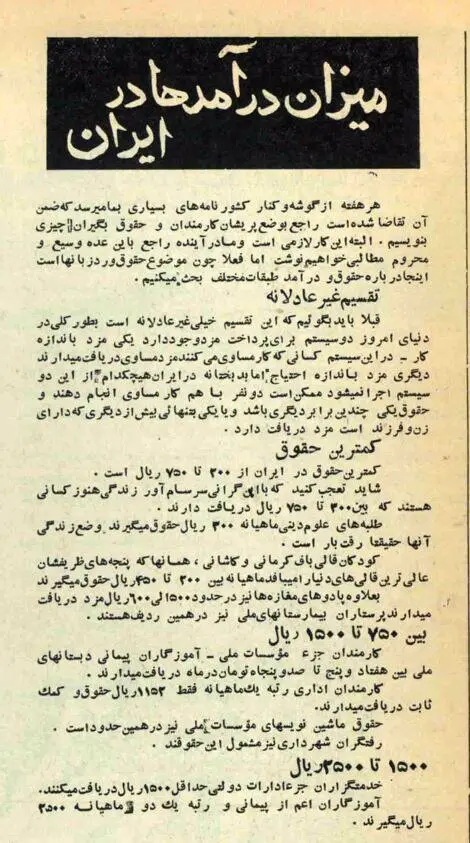 میزان درآمدها در
ایران
هر هفته از گوشه و کنار کشور نامه‌های بسیاری بما میرسد که ضمن
آن تقاضا شده است راجع بوضع پریشان کارمندان و حقوق بگیران چیزی
بنویسیم . البته این کار لازمی است و ما در آینده راجع باین عده وسیع و
محروم مطالبی خواهیم نوشت اما فعلا چون موضوع حقوق ورد زبانها است
اینجا درباره حقوق و درآمد طبقات مختلف بحث میکنیم .
تقسیم غیر عادلانه
قبلا باید بگوئیم که این تقسیم خیلی غیر عادلانه است بطور کلی در
دنیای امروز دو سیستم برای پرداخت مزد وجود دارد یکی مزد باندازه
کار - در این سیستم کسانی که کار مساوی می کنند مزد مساوی دریافت میدارند
دیگری مزد باندازه احتیاج اما بدبختانه در ایران هیچکدام از این دو
سیستم اجرا نمیشود ممکن است دو نفر با هم کار مساوی انجام دهند و
حقوق یکی چندین برابر دیگری باشد و یا یکی بتنهائی بیش از دیگری که دارای
زن و فرزند است مزد دریافت دارد .
کمترین حقوق
کمترین حقوق در ایران از ۲۰۰ تا ۷۵۰ ریال است .
شاید تعجب کنید که با این گرانی سرسام آور زندگی هنوز کسانی
هستند که بین ۳۰۰ تا ۷۵۰ ریال دریافت دارند .
طلبه‌های علوم دینی ماهیانه ۳۰۰ ریال حقوق میگیرند وضع زندگی
آنها حقیقتا رقت بار است .
کودکان قالی باف کرمانی و کاشانی ، همانها که پنجه‌های ظریفشان
عالی ترین قالی‌های دنیا را میبافد ماهیانه بین ۲۰۰ تا ۴۵۰ ریال حقوق میگیرند
بعلاوه پادوهای مغازه‌ها نیز در حدود ۱۵۰۰ الی ۶۰۰ ریال مزد دریافت
میدارند پرستاران بیمارستانهای ملی نیز در همین ردیف هستند .
بین ۷۵۰ تا ۱۵۰۰ ریال
کارمندان جزء مؤسسات ملی - آموزگاران پیمانی دبستانهای
ملی بین هفتاد و پنج تا صد و پنجاه تومان در ماه دریافت میدارند .
کارمندان اداری رتبه یك ماهیانه فقط ۱۱۵۲ ریال حقوق و کمك
ثابت دریافت میدارند .
حقوق ماشین نویسهای مؤسسات ملی نیز در همین حدود است .
رفتگران شهرداری نیز مشمول این حقوقند .
۱۵۰۰ تا ۲۵۰۰ ریال
خدمتگزاران جزء ادارات دولتی حداقل ۱۵۰۰ ریال دریافت میکنند .
آموزگاران اعم از پیمانی و رتبه یك دو ماهیانه ۲۵۰۰
ریال میگیرند .